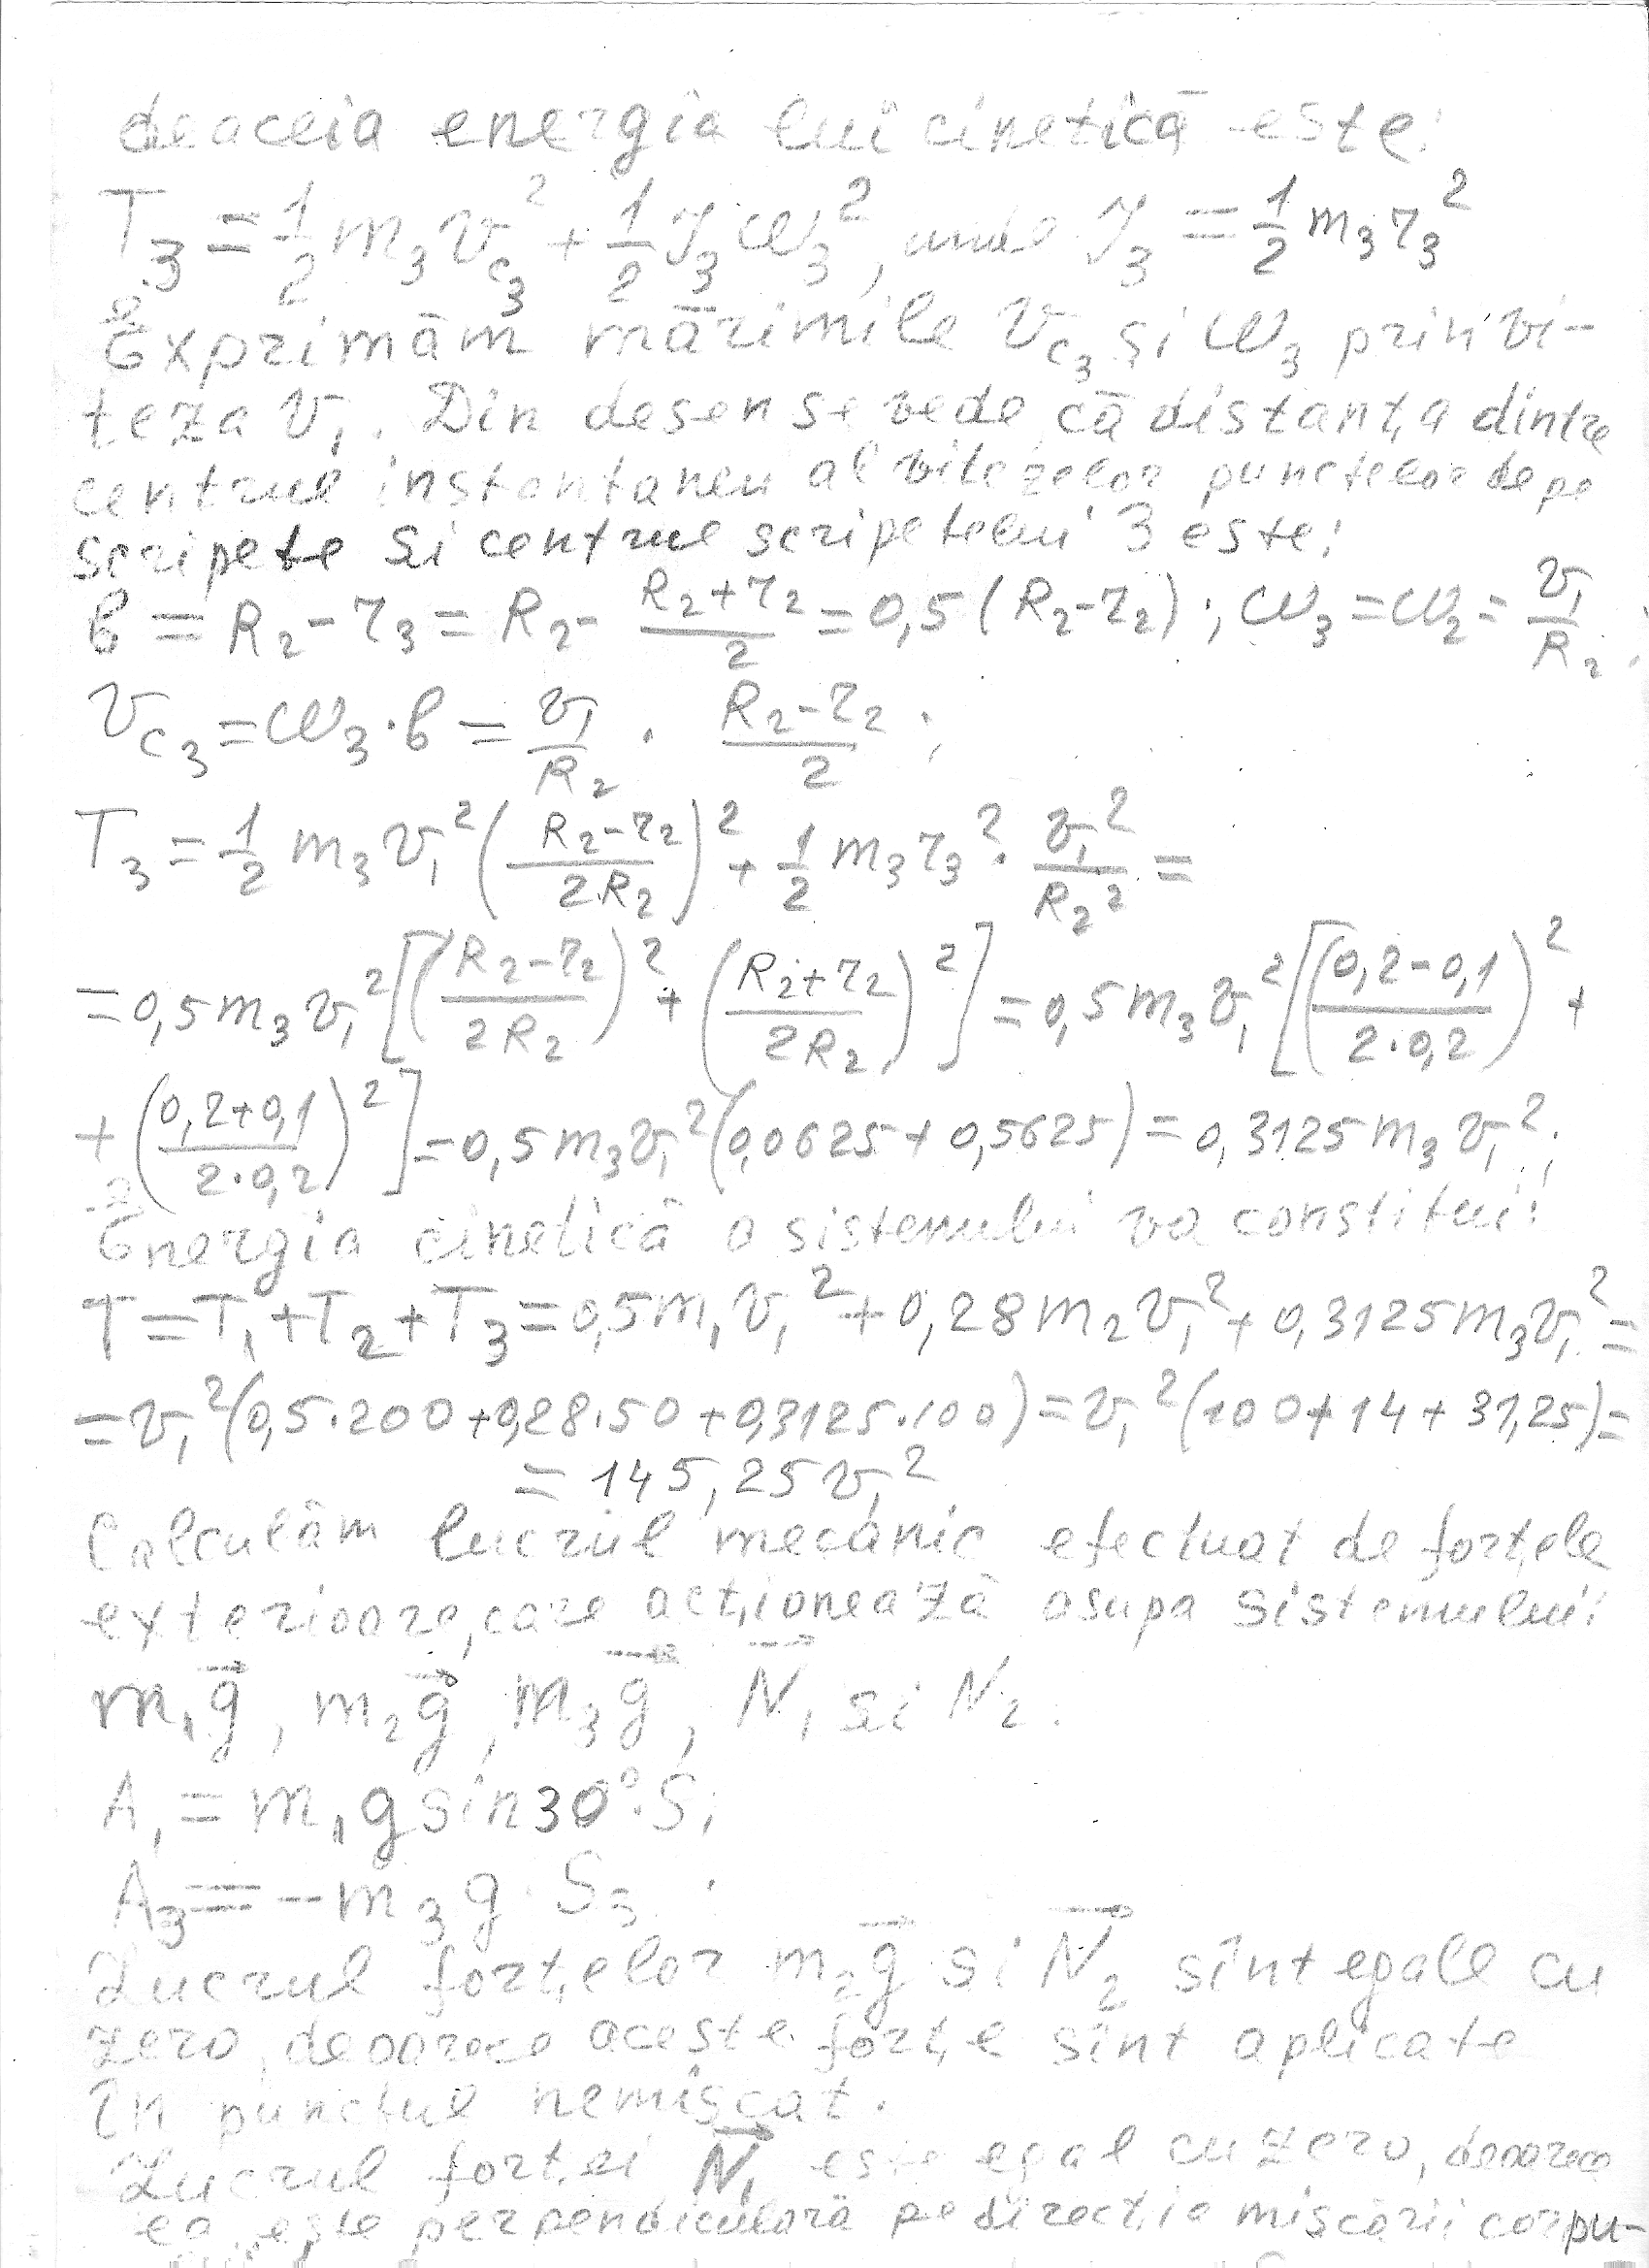 deaceia energia lui cinetică este:
T₃ = 1/2 m₃ v_c₃² + 1/2 J₃ ω₃², unde J₃ = 1/2 m₃ r₃²
Exprimăm mărimile v_c₃ și ω₃ prin vi-
teza v₁. Din desen se vede că distanța dintre
centrul instantaneu al vitezelor punctelor de pe
scripete si centrul scripetelui 3 este:
b = R₂ - r₃ = R₂ - (R₂ + r₂)/2 = 0,5 (R₂ - r₂); ω₃ = ω₂ = v₁/R₂;
v_c₃ = ω₃ · b = v₁/R₂ · (R₂ - r₂)/2;
T₃ = 1/2 m₃ v₁² ((R₂ - r₂)/2R₂)² + 1/2 m₃ r₃² · v₁²/R₂² =
= 0,5 m₃ v₁² [((R₂ - r₂)/2R₂)² + ((R₂ + r₂)/2R₂)²] = 0,5 m₃ v₁² [((0,2 - 0,1)/2·0,2)² +
+ ((0,2 + 0,1)/2·0,2)²] = 0,5 m₃ v₁² (0,0625 + 0,5625) = 0,3125 m₃ v₁²;
Energia cinetică a sistemului va constitui:
T = T₁ + T₂ + T₃ = 0,5 m₁ v₁² + 0,28 m₂ v₁² + 0,3125 m₃ v₁² =
= v₁² (0,5·200 + 0,28·50 + 0,3125·100) = v₁² (100 + 14 + 31,25) =
= 145,25 v₁²
Calculăm lucrul mecanic efectuat de forțele
exterioare, care acționează asupa sistemului:
m₁g⃗, m₂g⃗, m₃g⃗, N⃗₁ si N⃗₂.
A₁ = m₁ g sin30°·S₁
A₃ = - m₃ g S₃.
Lucrul forțelor m₂g⃗ si N⃗₂ sînt egale cu
zero, deoarece aceste forțe sînt aplicate
în punctul nemișcat.
Lucrul forței N⃗₁ este egal cu zero, deoarece
ea este perpendiculară pe direcția mișcării corpu-